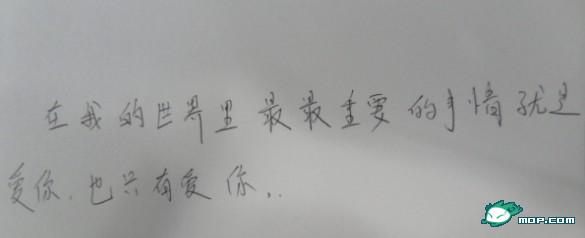 在我的世界里最最重要的事情就是
爱你.也只有爱你,..
MOP.COM